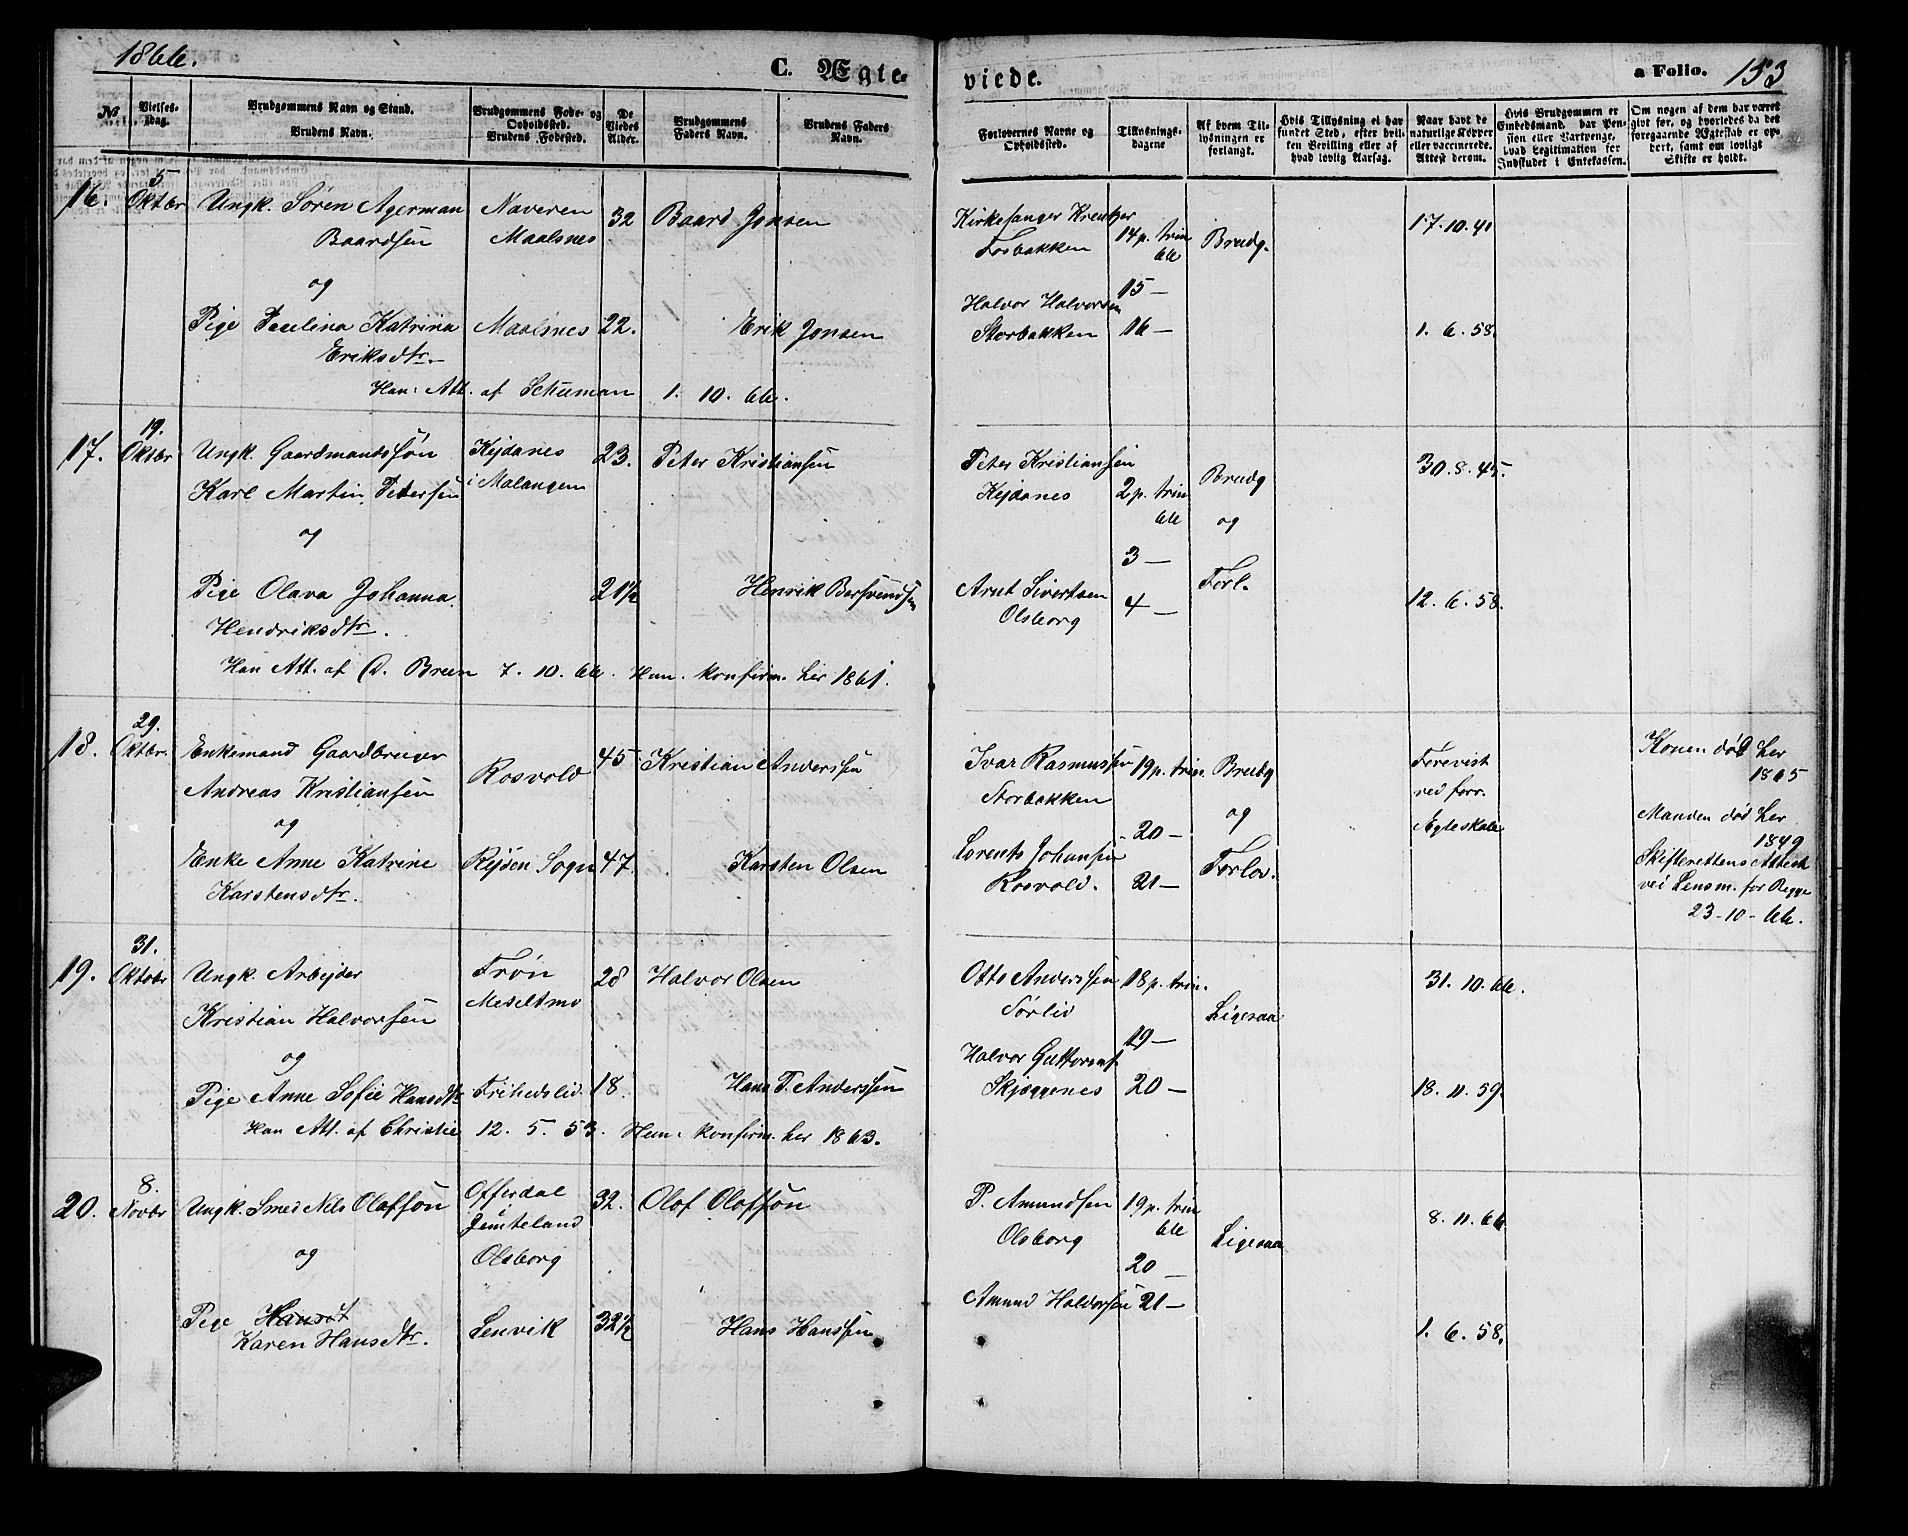 1866.
C. Ægte-
viede.
a Folio. 153
№
Vielses-dag.
Brudgommens Navn og Stand.
Brudens Navn.
Brudgommens Føde- og Opholdssted.
Brudens Fødested.
De Viedes Alder.
Brudgommens Faders Navn.
Brudens Faders Navn.
Forlovernes Navne og Opholdssted.
Tillysnings-dagene
Af hvem Til-lysningen er forlangt.
Hvis Tillysning ei har fundet Sted, efter hvil-ken Bevilling eller af hvad lovlig Aarsag.
Naar havt de naturlige Kopper eller vaccinerede. Attest derom.
Hvis Brudgommen er Embedsmand, har Pen-sion eller Vartpenge, hvad Legitimation for Indskudet i Enkekassen.
Om nogen af dem har været givt før, og hvorledes da det foregaaende Ægteskab er op-hørt, samt om lovligt Skifte er holdt.
16.
5. Oktbr
Ungk. Søren Agerman
Baardsen
Naveren
Maalsnes
32
Baard Jonsen
Kirkesanger Kreutzer
Fosbakken
14 p. trin 66
15 —
16 —
Brudg.
17. 10. 41
og
Pige Paulina Katrina
Eriksdtr.
Maalsnes
22.
Erik Jonsen
Halvor Halvorsen
Storbakken
1. 6. 58.
Han: Att. af Schuman 1. 10. 66.
17.
19. Oktbr
Ungk. Gaardmandssøn
Karl Martin Pedersen
Kejdanes
i Malangen
23.
Peter Kristiansen
Peter Kristiansen
Kejdanes
2 p. trin 66
3 —
4 —
Brudg
og
Forl.
30. 8. 45.
og
Pige Olava Johanna
Hendriksdtr.
21½
Henrik Bersvendsen
Arnt Sivertsen
Olsborg
12. 6. 58.
Han Att. af C. Breen 7. 10. 66. Hun. konfirm. her 1861.
18.
29. Oktbr.
Enkemand Gaardbruger
Andreas Kristiansen
Rosvold
45
Kristian Anderssen
Ivar Rasmussen
Storbakken
19 p. trin.
20 —
21 —
Brudg
og
Forlov.
Forevist
ved forr.
Ægteskab
Konen død her
1865
Manden død her
1849
Skifterettens Attest
ved Lensm. for Begge
23-10-66.
og
Enke Anne Katrine
Karstensdtr.
Rejsen Sogn
47.
Karsten Olsen
Lorents Johansen
Rosvold.
19.
31. Oktobr
Ungk. Arbejder
Kristian Halvorsen
Trøn
Meseltmo
28
Halvor Olsen
Otto Anderssen
Sørlid
18 p. trin.
19 —
20 —
Ligesaa
31. 10. 66.
og
Pige Anne Sofie Hansdtr
Frihedslid
18.
Hans T. Anderssen
Halvor Guttorms.
Skjæggenes
18. 11. 59.
Han Att. af Christie 12. 5. 53. Hun: konfirm. her 1863.
20.
8. Novbr
Ungk. Smed Nels Olafson
Offerdal
Jemteland
Olsborg
32.
Olof Olofson
P. Amundsen
Olsborg
19 p. trin 66
20 —
21 —
Ligesaa
8. 11. 66.
og
Pige Hansdt
Karen Hansdtr.
Lenvik
32½
Hans Hanssen
Amund Halvorsen
1. 6. 58.